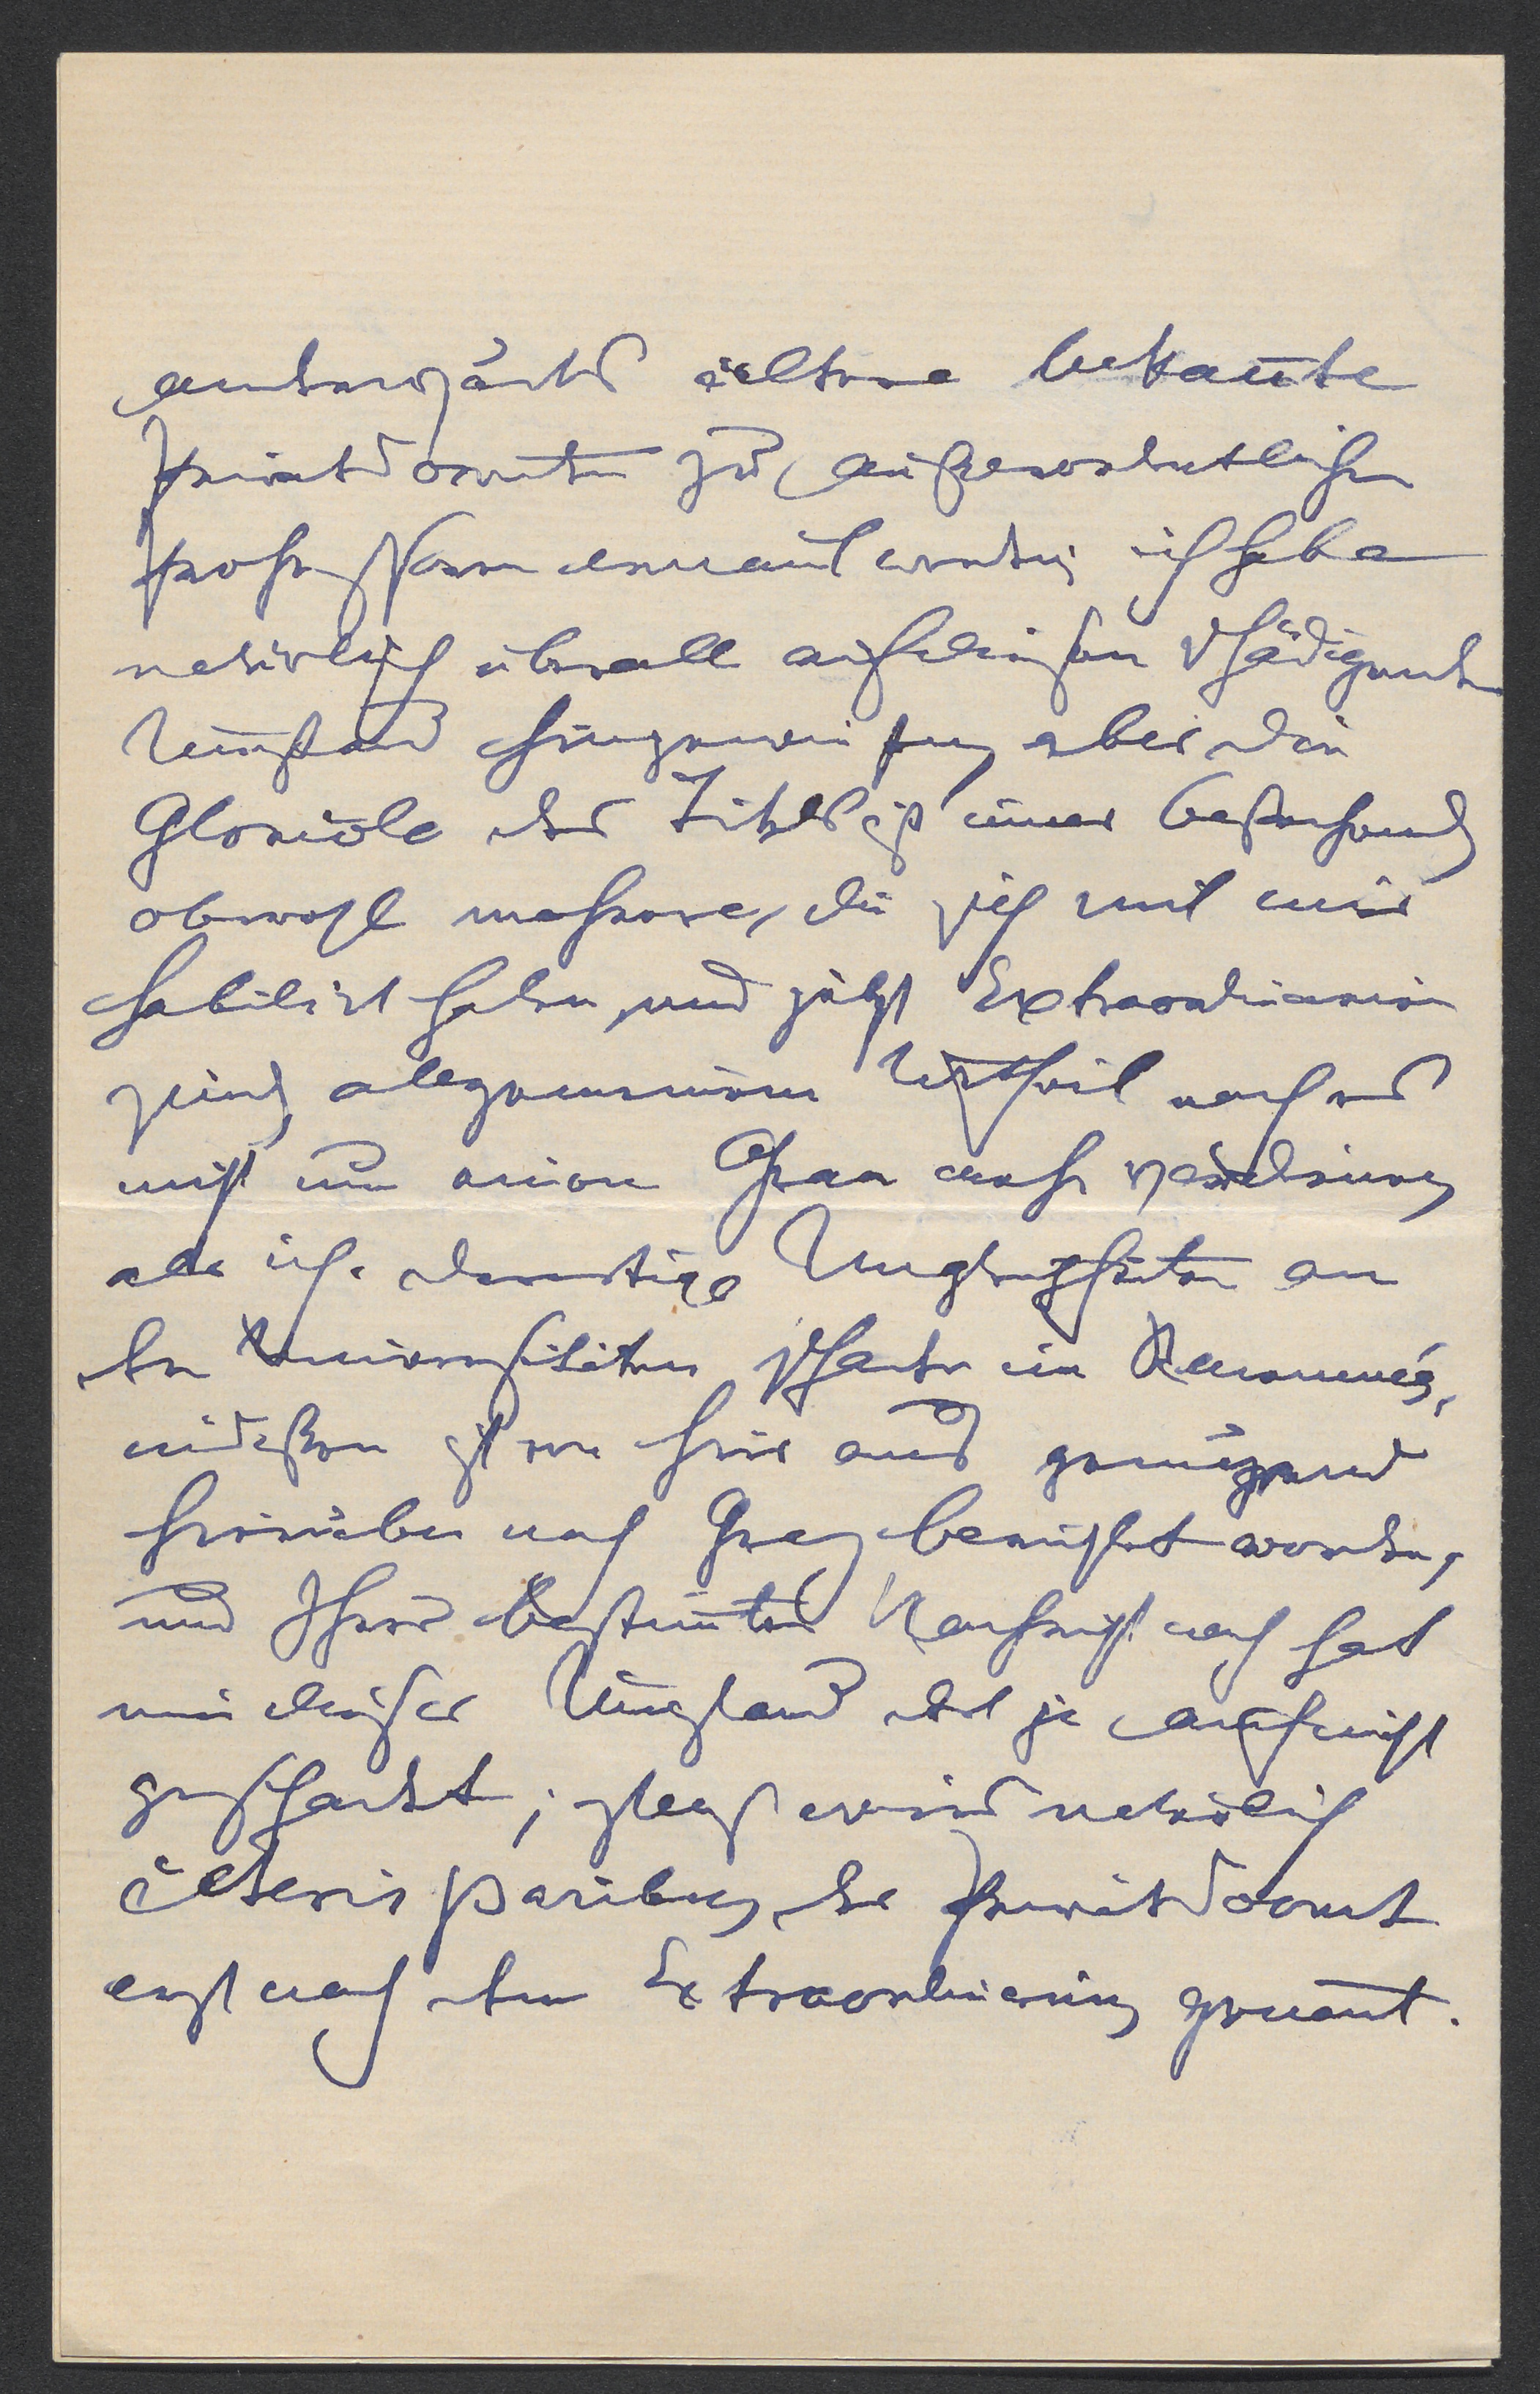 anderwärts ältere bekañte
Privatdocenten zu außerordentlichen
Professoren ernañt werden; ich habe
natürlich überall auf diesen schädigenden
Umstand hingewiesen, aber die
Gloriole des Titels ist immer bestechend,
obwohl mehrere, die sich mit mir
habilitirt haben, und jetzt Extraordinarien
sind, allgemeinem Urtheil nach es
nicht um ein Haar mehr verdienen,
als ich. derartige Ungleichheiten an
den Universitäten schaden im Renommée,
indessen ist von hier aus genügend
hierüber nach Graz berichtet worden,
und Ihrer bestimten Nachricht nach hat
mir dieser Umstand dort ja auch nicht
geschadet; sonst wird natürlich
ceteris paribus der Privatdocent
erst nach dem Extraordinarius genañt.